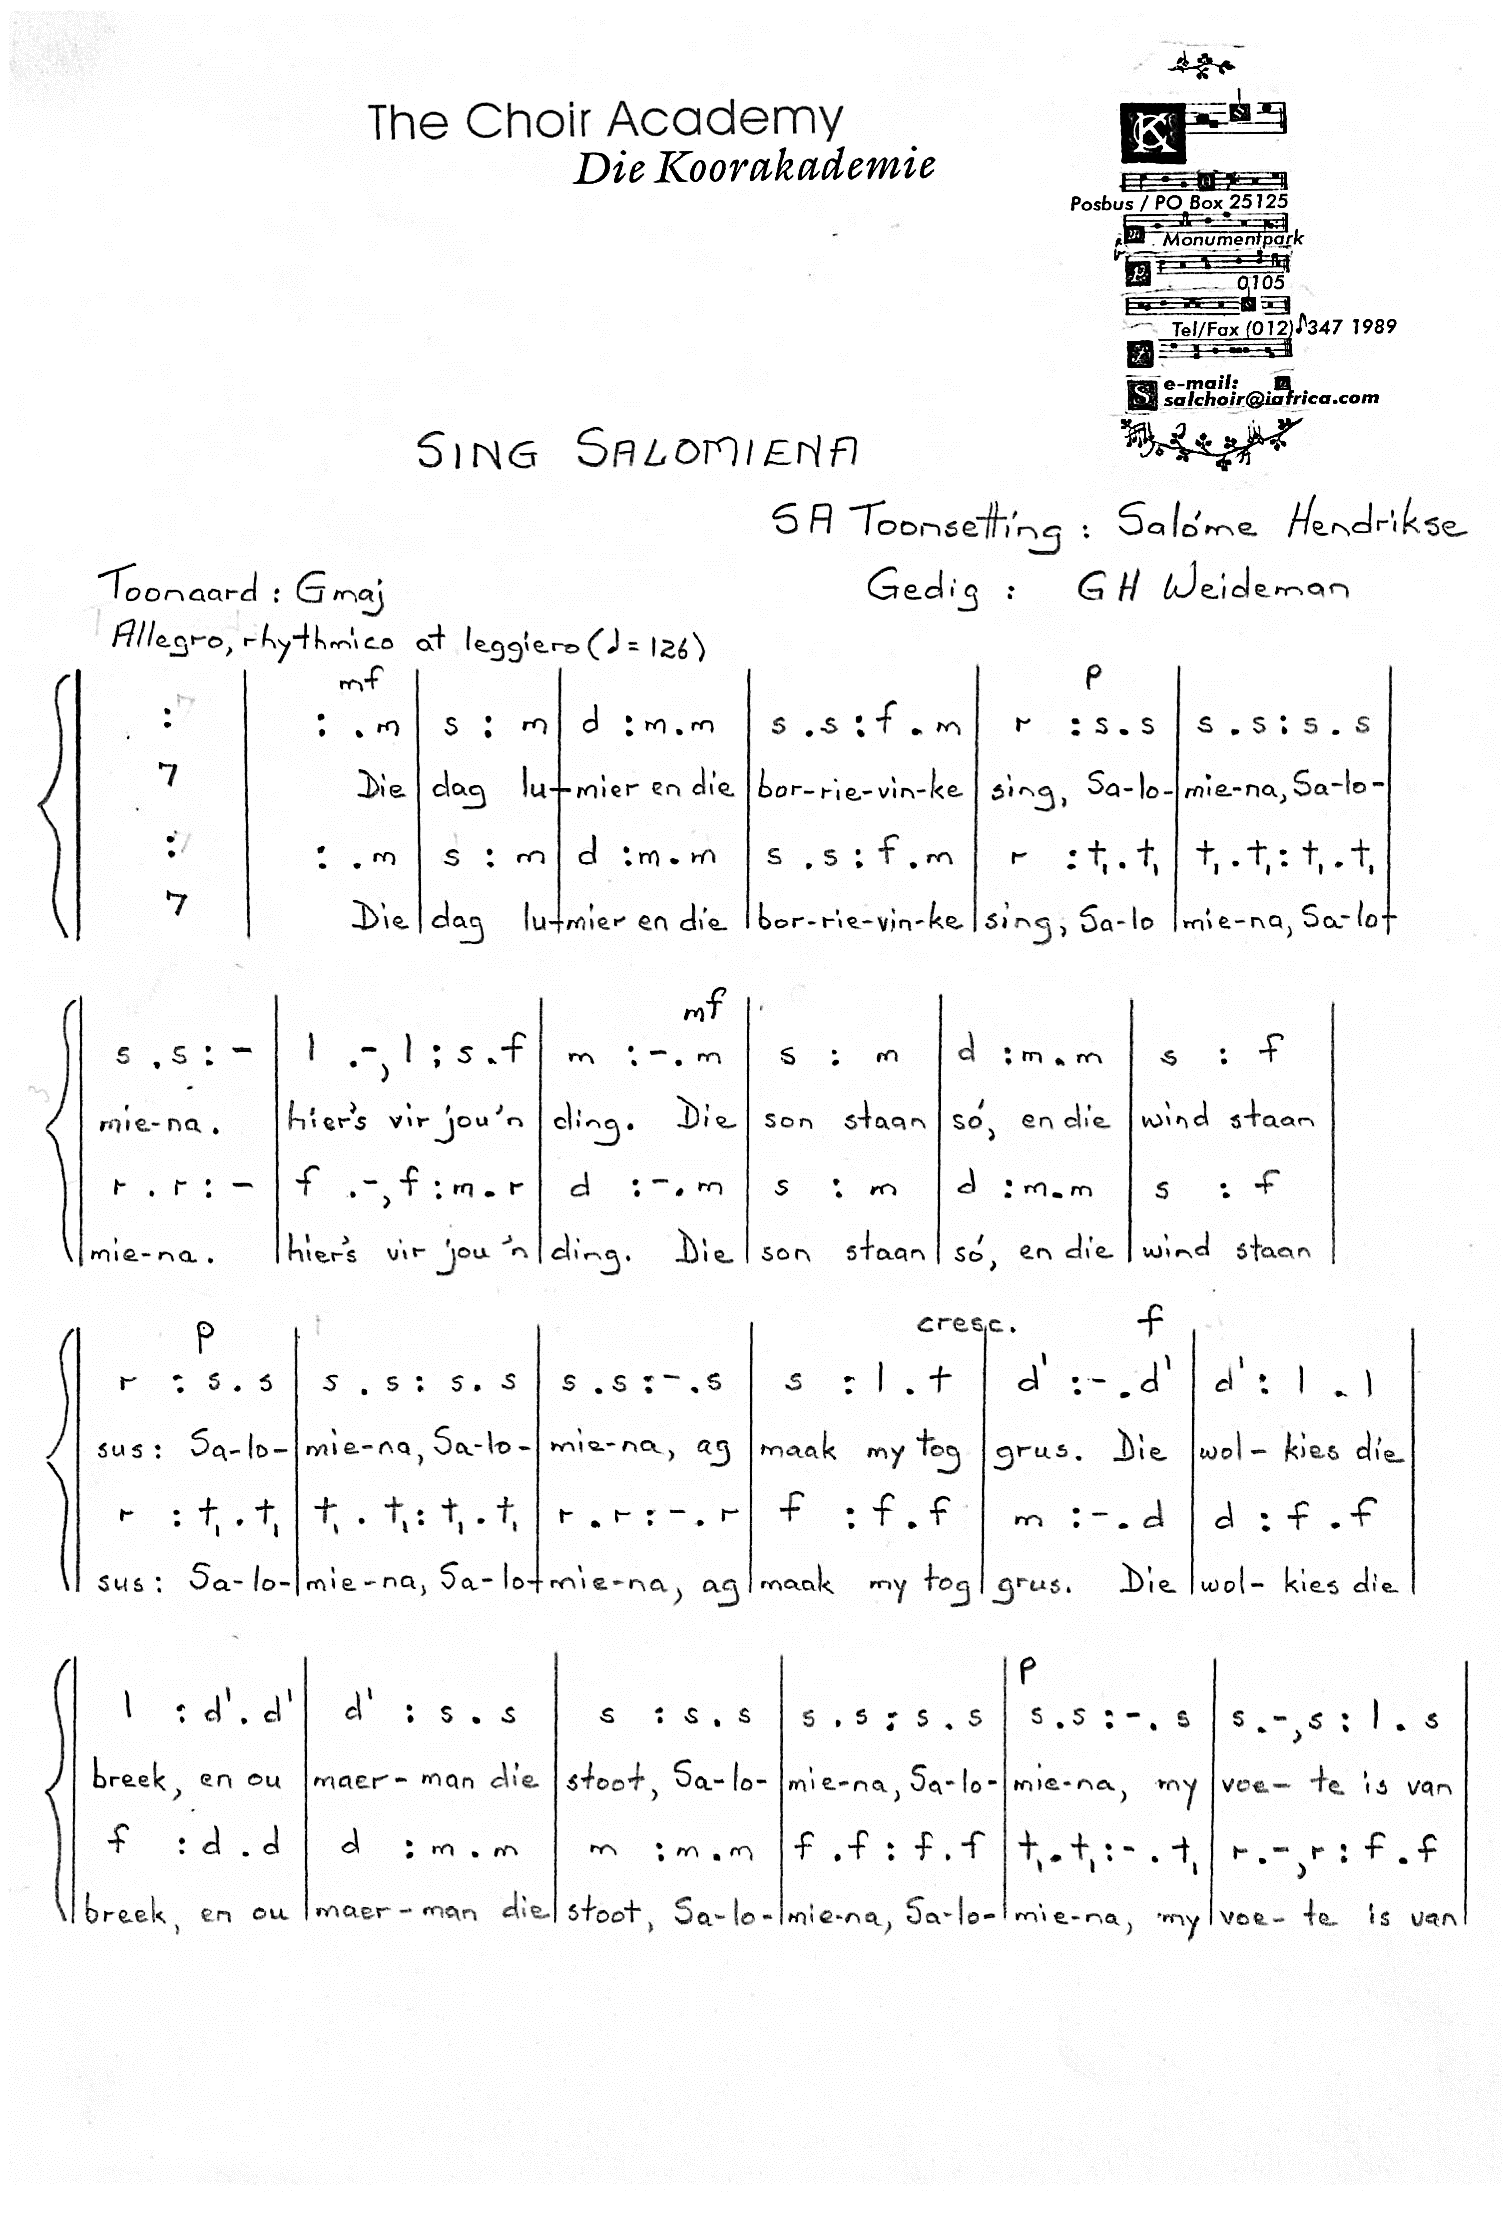 The Choir Academy
Die Koorakademie
Posbus / PO Box 25125
Monumentpark
0105
Tel/Fax (012) 347 1989
e-mail:
salchoir@iafrica.com
SING SALOMIENA
SA Toonsetting : Salóme Hendrikse
Toonaard : Gmaj
Gedig : GH Weideman
Allegro, rhythmico at leggiero (♩= 126)
mf p
: | : .m | s : m | d :m.m | s .s : f .m | r :s.s | s .s : s .s |
7 | Die | dag lu-|mier en die | bor-rie-vin-ke | sing, Sa-lo-| mie-na, Sa-lo-|
: | : .m | s : m | d :m.m | s .s : f .m | r :t₁.t₁ | t₁ .t₁ : t₁ .t₁ |
7 | Die | dag lu-|mier en die | bor-rie-vin-ke | sing, Sa-lo | mie-na, Sa-lo-|
mf
| s .s : - | l .-,l : s.f | m :-.m | s : m | d :m.m | s : f |
| mie-na. | hier's vir jou 'n | ding. Die | son staan | só, en die | wind staan |
| r .r : - | f .-,f : m.r | d :-.m | s : m | d :m.m | s : f |
| mie-na. | hier's vir jou 'n | ding. Die | son staan | só, en die | wind staan |
p cresc. f
| r : s.s | s .s : s.s | s.s :-.s | s : l .t | d' :-.d' | d' : l .l |
| sus: Sa-lo-| mie-na, Sa-lo-| mie-na, ag | maak my tog | grus. Die | wol-kies die |
| r : t₁.t₁ | t₁ .t₁ : t₁.t₁ | r.r :-.r | f : f.f | m :-.d | d : f .f |
| sus: Sa-lo-| mie-na, Sa-lo-| mie-na, ag | maak my tog | grus. Die | wol-kies die |
p
| l : d'.d' | d' : s.s | s : s.s | s.s : s.s | s.s :-.s | s.-,s : l.s |
| breek, en ou | maer-man die | stoot, Sa-lo-| mie-na, Sa-lo-| mie-na, my | voe-te is van |
| f : d.d | d : m.m | m : m.m | f .f : f.f | t₁.t₁ :-.t₁ | r.-,r : f .f |
| breek, en ou | maer-man die | stoot, Sa-lo-| mie-na, Sa-lo-| mie-na, my | voe-te is van |